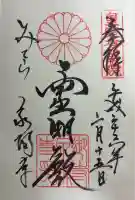 奉拝
令和元年
六月十五日
霊明殿
みてら
泉涌寺